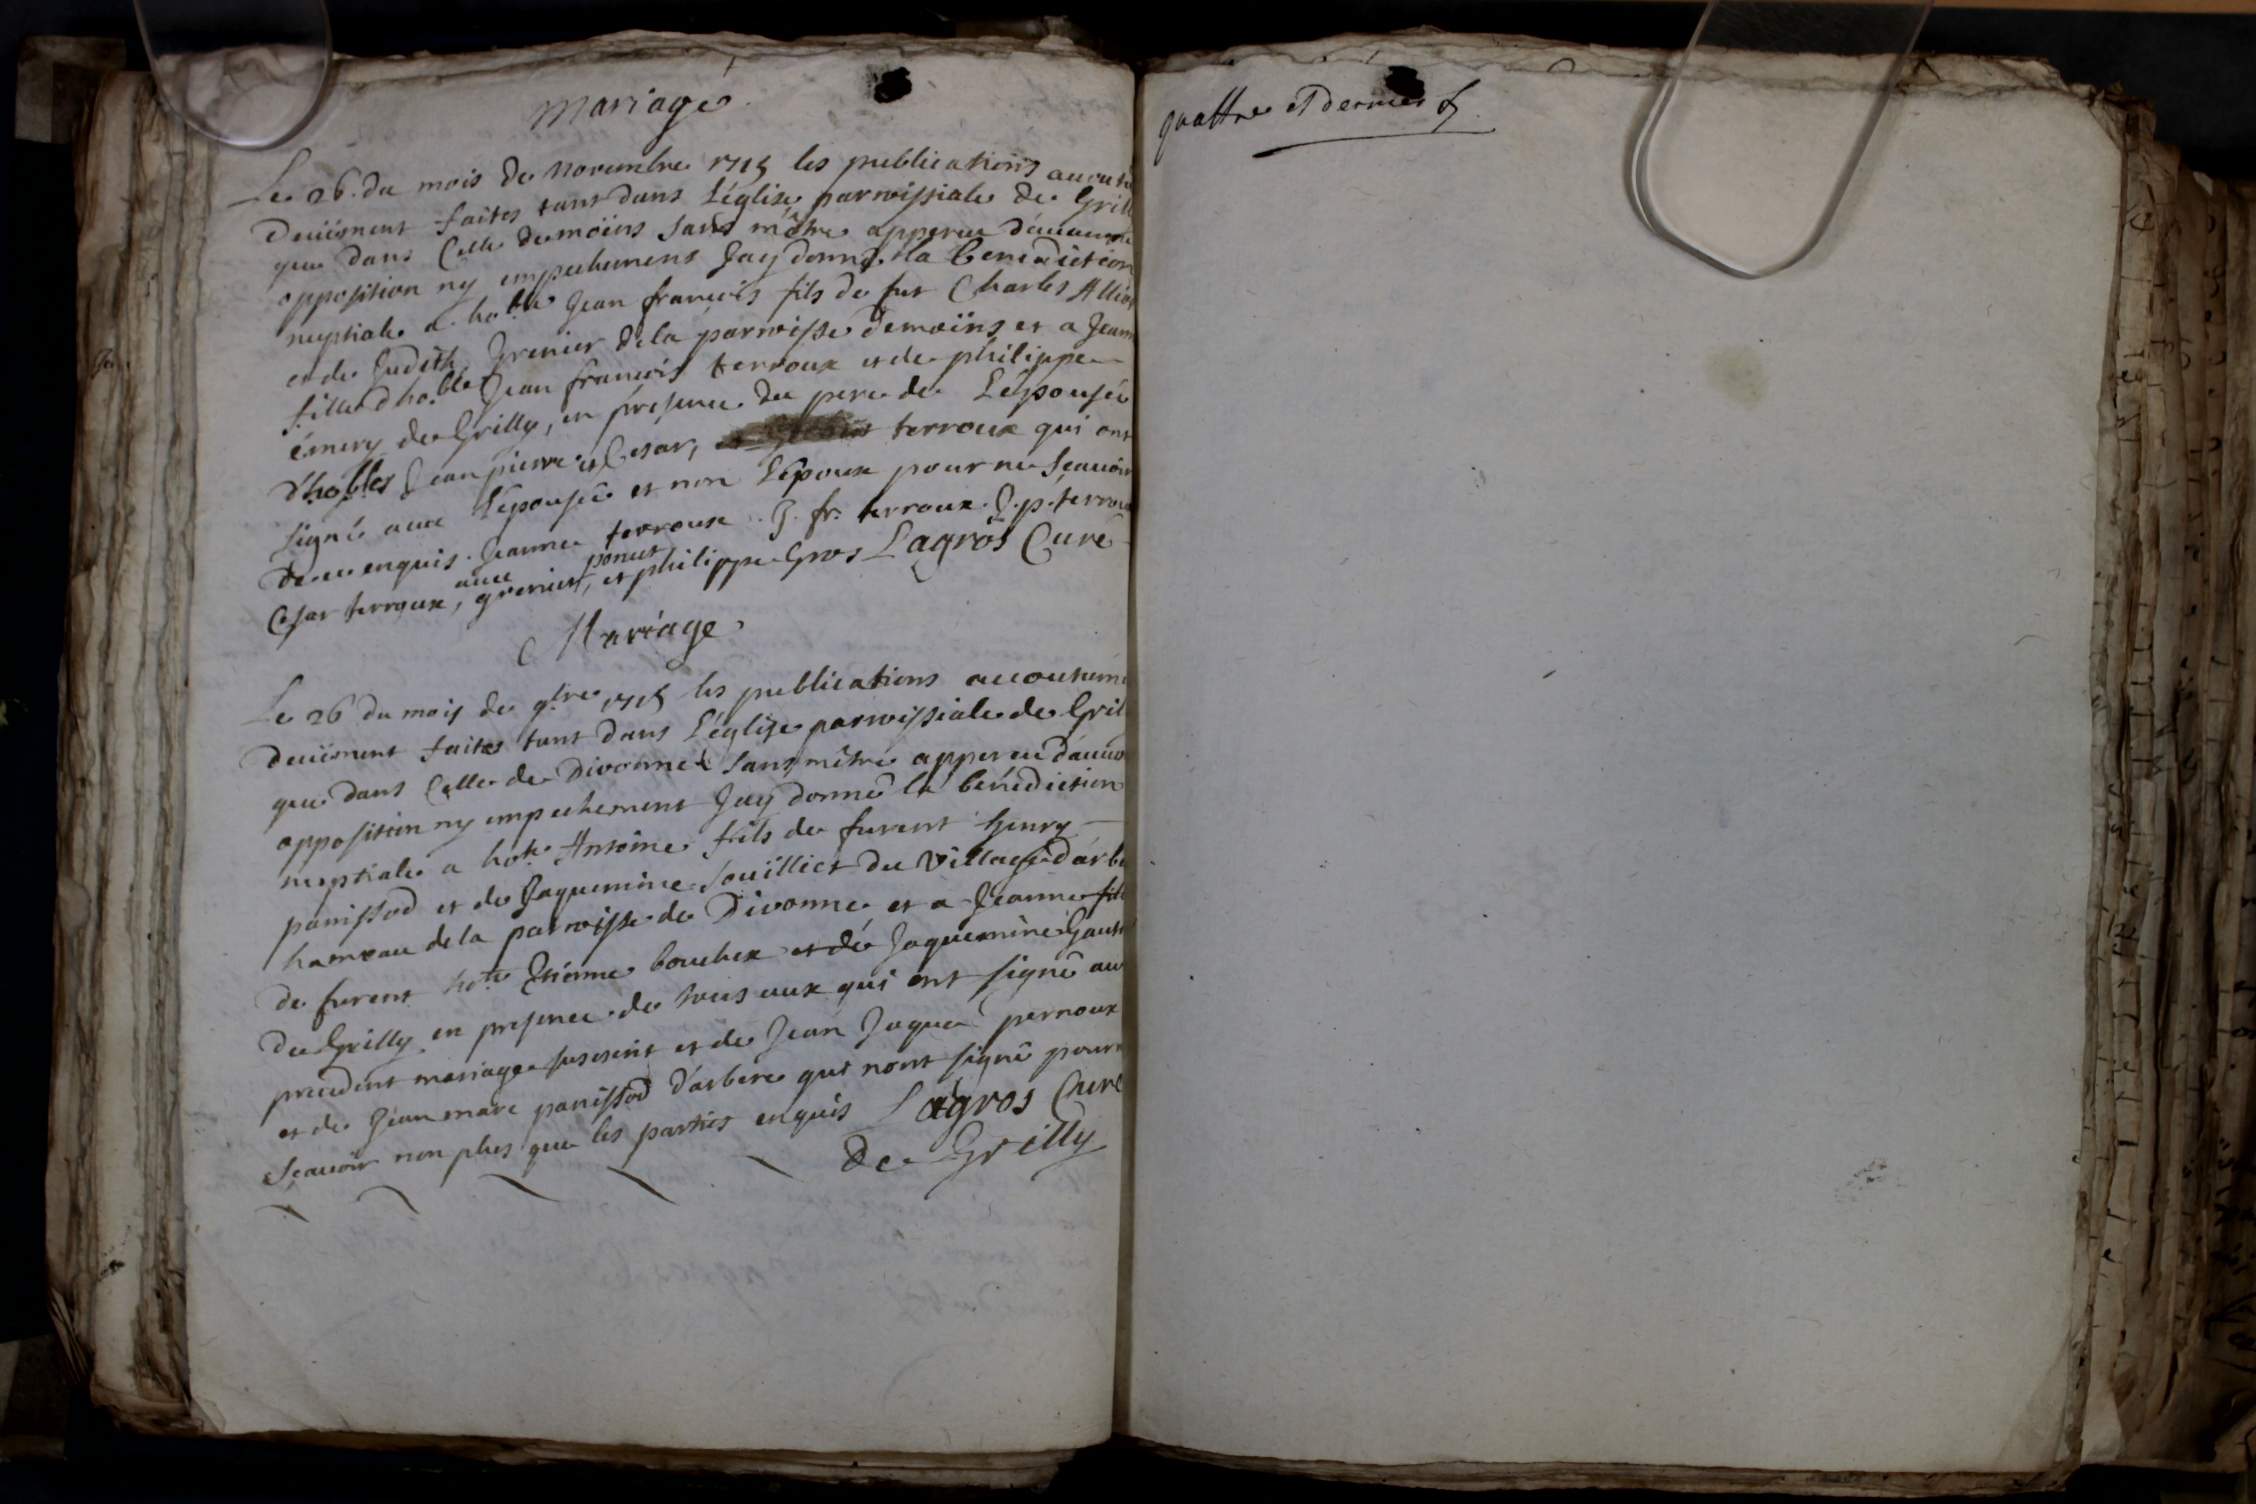 Mariage
Le 26. du mois de novembre 1715 les publications
deuëment faites tant dans L'église parroissiale de Grill
que dans Celle demoins sans mêtre apperceu d'aucune
opposition ny empechement Jay donné la benediction
nuptiale a ho.ble Jean francois fils de fut Charles
et de Judith Grenier dela parroisse demoïns et a Jeann
fille d'ho.ble Jean francois terroux et de philippe
émery de Grilly, en presence du pere de L'épousée
d'ho.bles Jean pierre et Cesar, terroux qui ont
signé avec L'épousée et non L'époux pour ne sçauoir
de ce enquis. Jeanne terroux. J. fr. terroux. J. p. terrou
Cesar terroux, avec grenier, ponut et philippe Gros Lagros Curé
Mariage
Le 26 du mois de 9.bre 1715 les publications accoutumé
deuëment faites tant dans L'église parroissiale de Gril
que dans Celle de Divonne sans mêtre apperceu d'aucu
opposition ny empechement Jay donné la bénédiction
nuptiale a ho.ble Antoine fils de furent henry
panissod et de Jaquemine Souillict du Village d'arb
hameau dela parroisse de Divonne et a Jeanne fill
de furent ho.ble Etienne bouchex et de Jaquemine Gaut
de Grilly en presence de tous ceux qui ont signé au
precedent mariage suscrit et de Jean Jaque pernoux
et de Jean marc panissod d'arbere qui nont signé pour
Sçauoir non plus que les parties enquis Lagros Curé
de Grilly
quattre et dernier f.